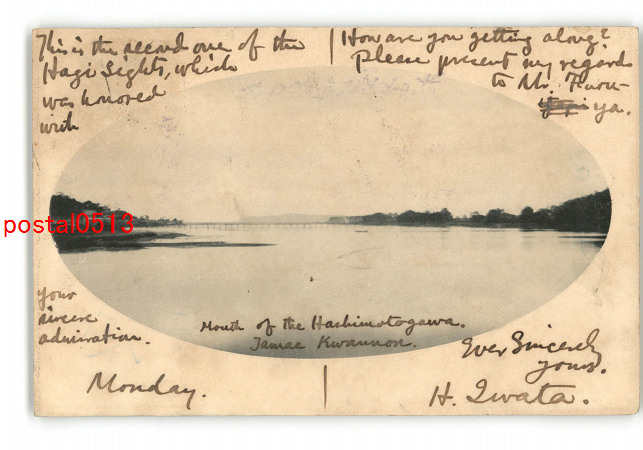 This is the second one of the
Hagi Sights, which
was honored
with
your
sincere
admiration.
Monday.
How are you getting along?
Please present my regards
to Mr.
ya.
Mouth of the Hashimotogawa.
Tamae Kwannon.
Ever Sincerely
yours.
H. Iwata.
postal0513